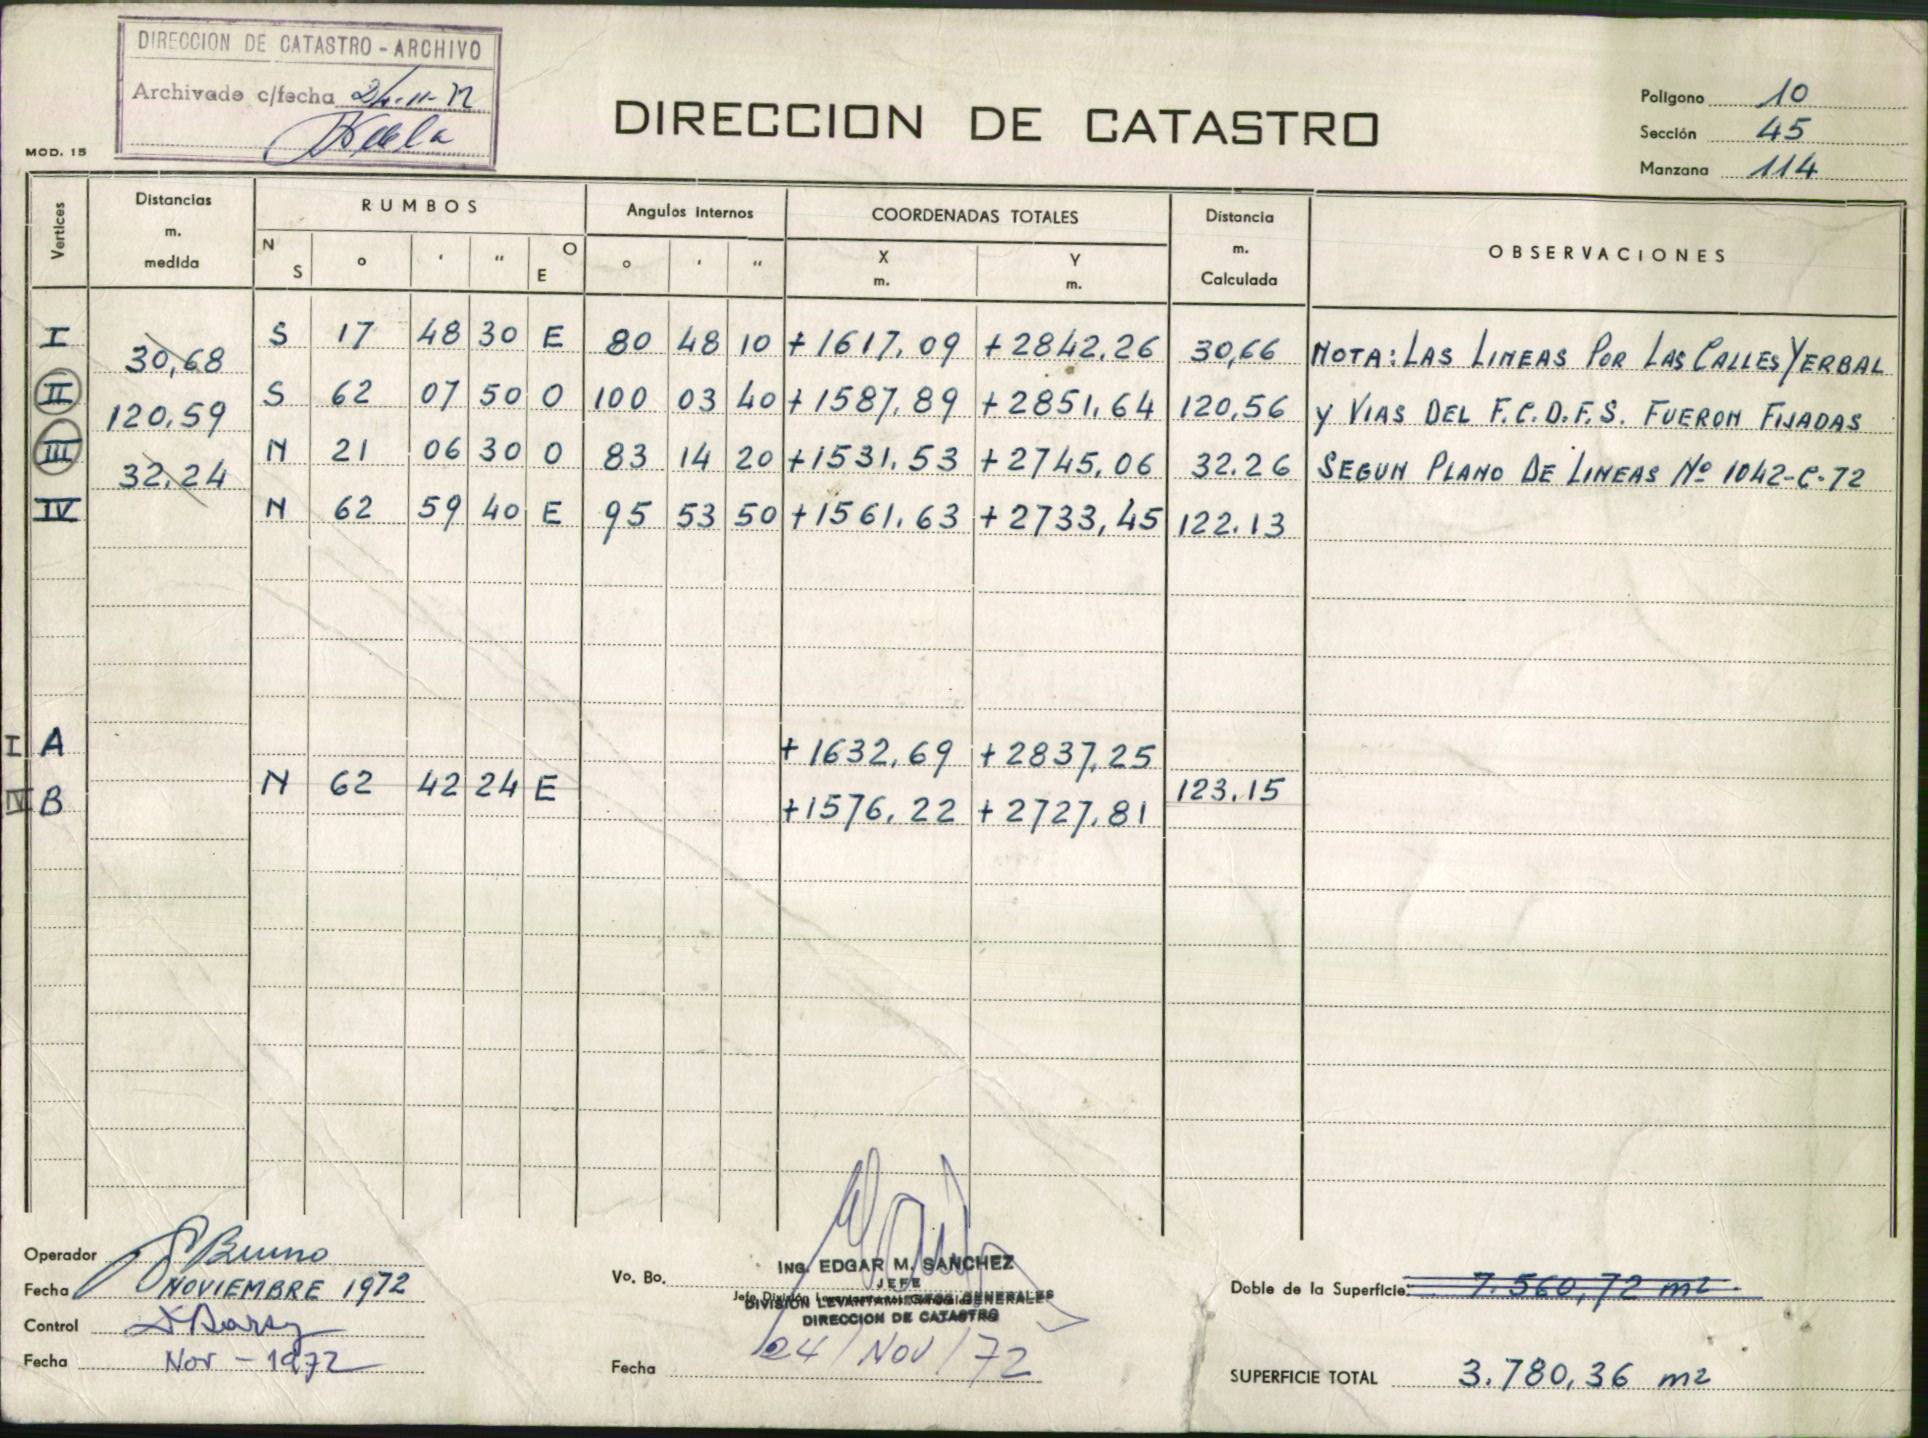 DIRECCION DE CATASTRO - ARCHIVO
Archivado c/fecha 24-11-72
MOD. 15
DIRECCION DE CATASTRO
Polígono 10
Sección 45
Manzana 114
Vertices
Distancias m. medida
RUMBOS
N S ° ' " O E
Angulos Internos
° ' "
COORDENADAS TOTALES
X m.
Y m.
Distancia m. Calculada
OBSERVACIONES
I S 17 48 30 E 80 48 10 +1617,09 +2842,26 30,66 NOTA: LAS LINEAS POR LAS CALLES YERBAL
30,68
II S 62 07 50 O 100 03 40 +1587,89 +2851,64 120,56 Y VIAS DEL F.C.D.F.S. FUERON FIJADAS
120,59
III N 21 06 30 O 83 14 20 +1531,53 +2745,06 32.26 SEGUN PLANO DE LINEAS Nº 1042-C-72
32,24
IV N 62 59 40 E 95 53 50 +1561,63 +2733,45 122.13
I A +1632,69 +2837,25
N 62 42 24 E 123,15
IV B +1576,22 +2727,81
Operador Bruno
Fecha NOVIEMBRE 1972
Control
Fecha Nov - 1972
Vo. Bo.
ING. EDGAR M. SANCHEZ
JEFE
DIVISION LEVANTAMIENTOS GENERALES
DIRECCION DE CATASTRO
Fecha 24/Nov/72
Doble de la Superficie: 7.560,72 m2
SUPERFICIE TOTAL 3.780,36 m2